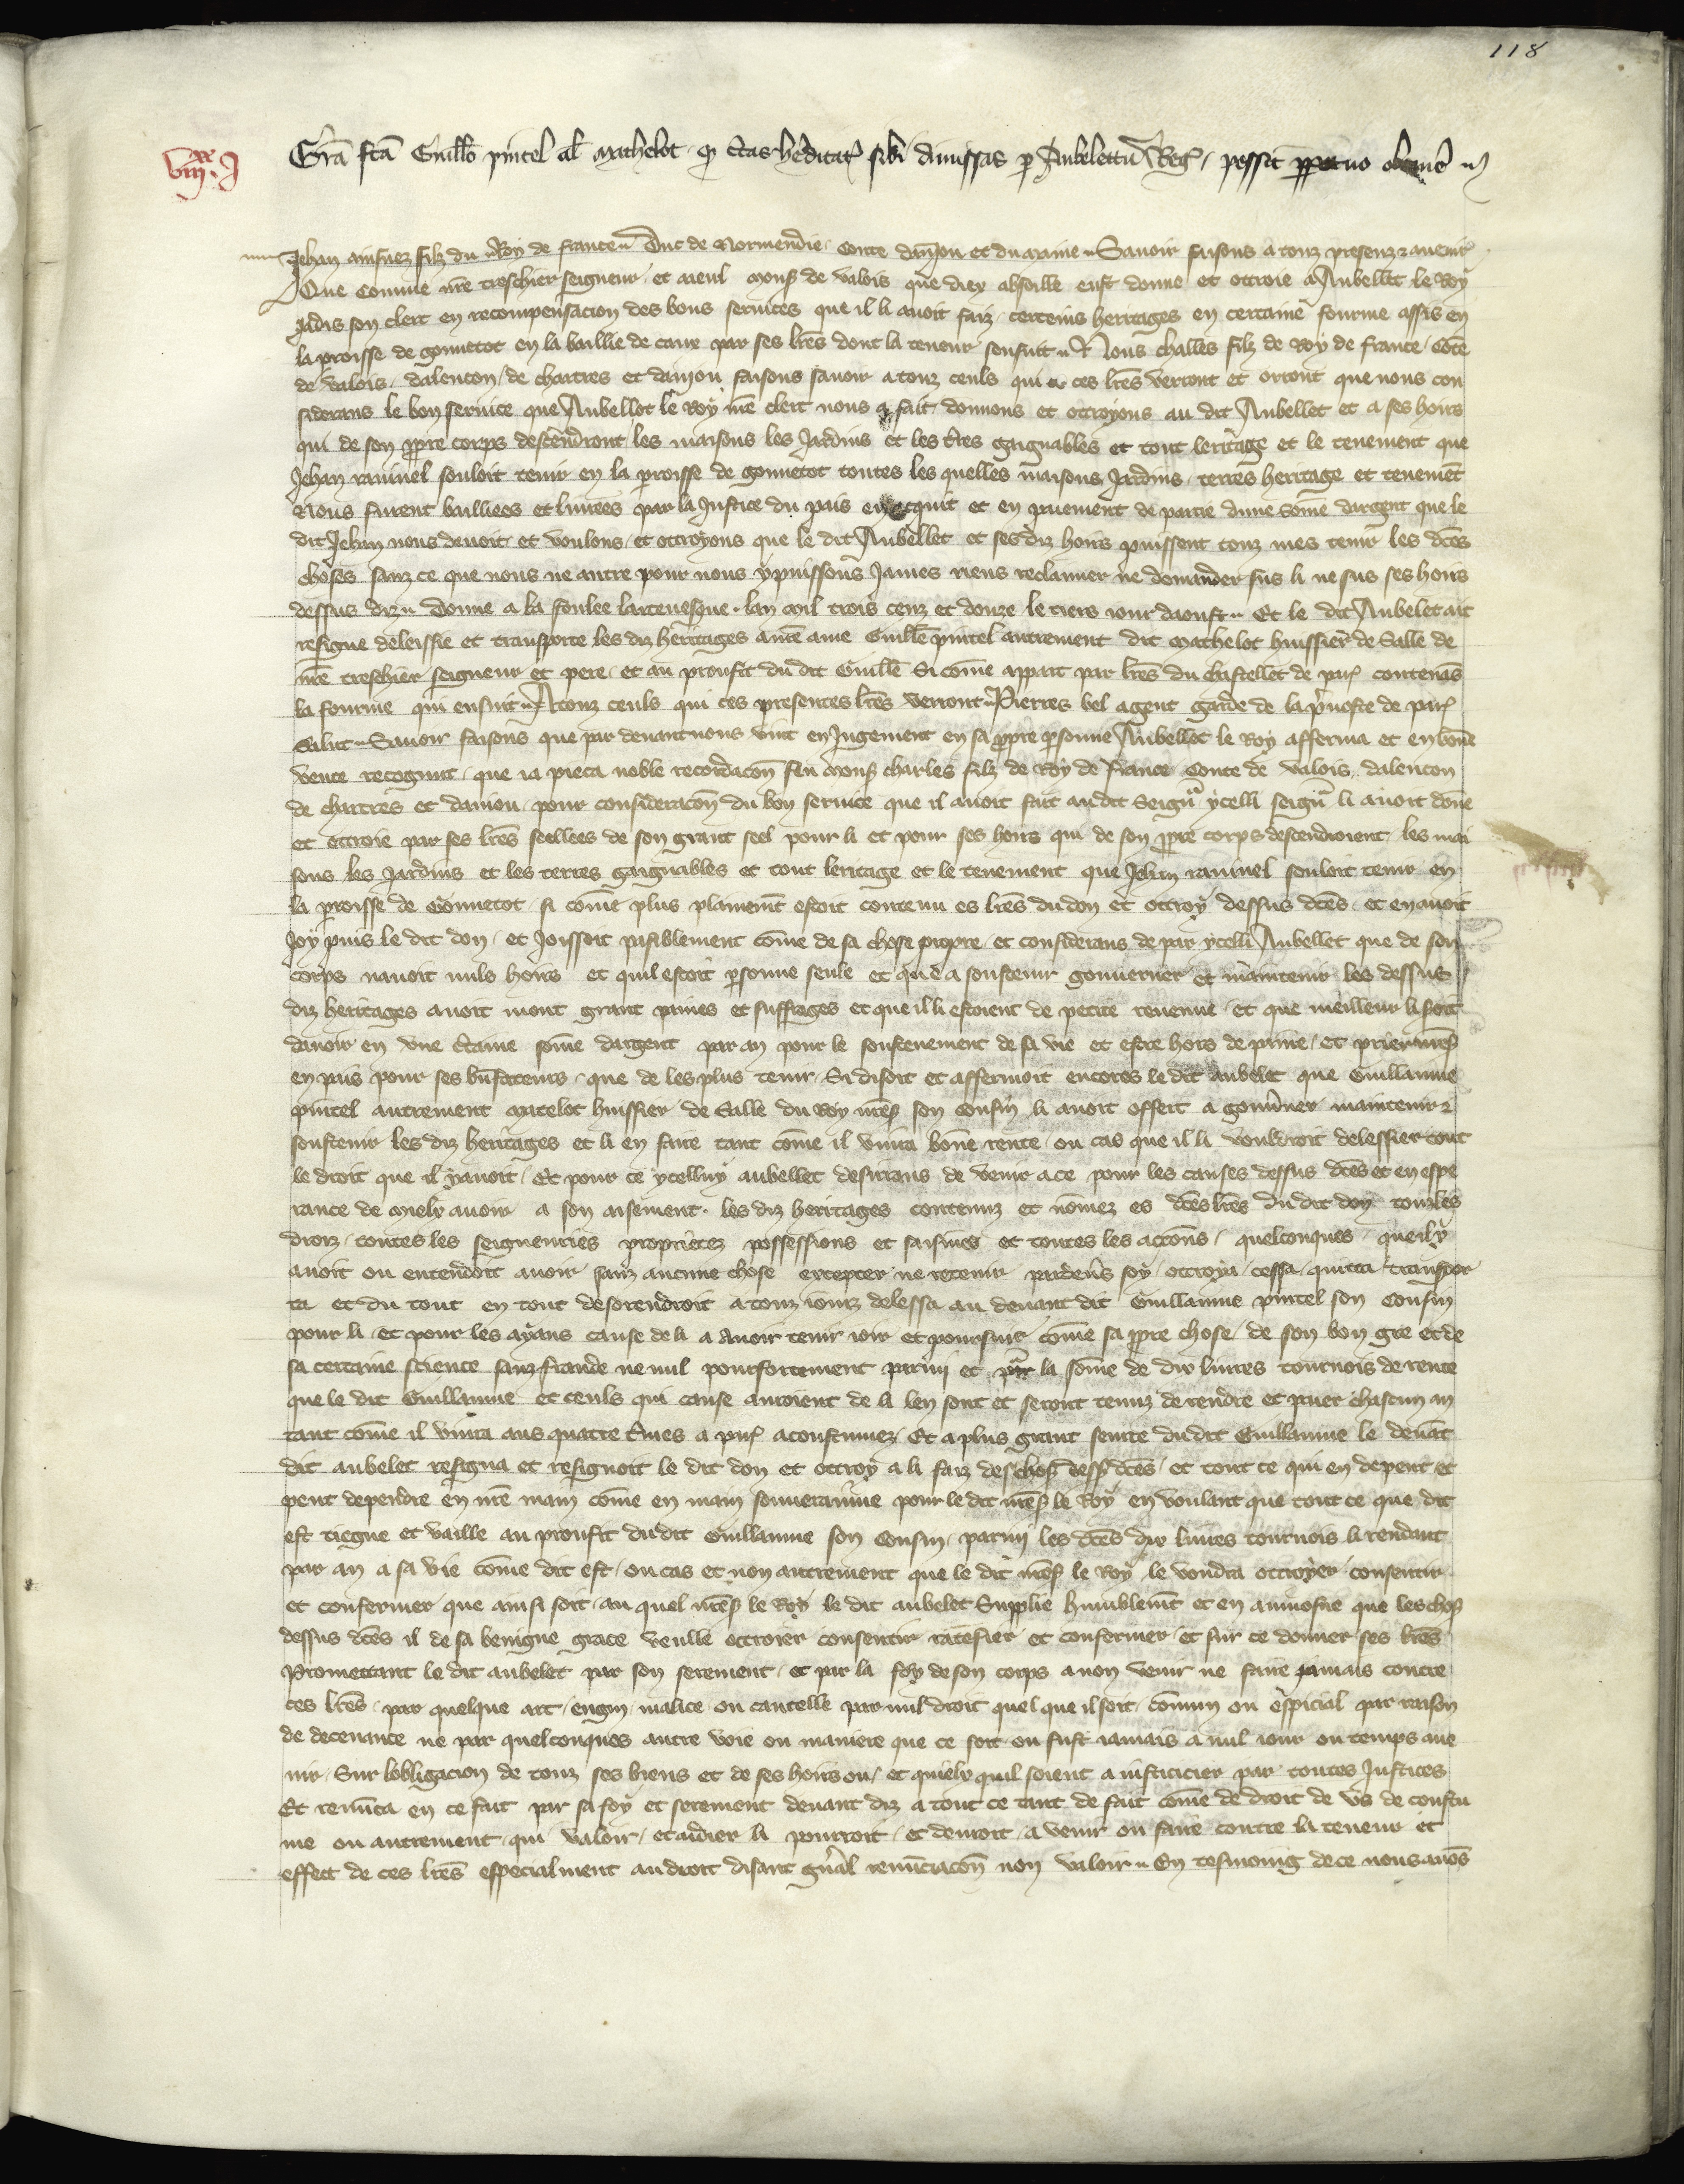 118
VIIIxx.I
Grā fcā Guillō pintel al' Mathelot q̄ ctas hēditat' sibi dimissas p Aubelettū Reg', possit ppetuo obtinē
Jehan ainsnez filz du Roy de france Duc de Normendie Conte danjou et du maine Savoir faisons a touz presenz & avenir
Que Comme nre treschier seigneur et aieul Mons' de valois que diex absoille eust donne et ottroie a Aubellet le Roy
Jadis son clerc en recompensacion des bons services que il li avoit faiz certeins heritages en certaine fourme assis en
la proisse de gonnetot en la baillie de caux par ses lres dont la teneur sensuit Nous challes filz de Roy de france Cōte
de Valois dalencon de chartres et danjou faisons savoir a touz ceuls qui ces lres verront et orront que nous con
siderans le bon service que Aubellet le Roy nre clerc nous a fait donnons et ottroyons au dit Aubellet et a ses hoirs
qui de son ppre corps descendront les maisons les Jardins et les tres gaignables et tout leritage et le tenement que
Jehan raninel souloit tenir en la proisse de gonnetot toutes les quelles maisons Jardins terres heritage et tenemēt
Nous furent bailliees et livrees par la Justice du pais en acquit et en paiement de partie dune sōme dargent que le
dit Jehan nous devoit et voulons et ottroyons que le dit Aubellet et ses diz hoirs puissent touz mes tenir les dces
choses sanz ce que nous ne autre pour nous y puissons James riens reclamer ne demander sus li ne sus ses hoirs
dessus diz Donne a la foulee larcevesque lan mil trois cenz et douze le tiers jour daoust Et le dit Aubelet ait
resigne delessie et transporte les diz heritages a nre ame Guille pintel autrement dit Mathelot huissier de Salle de
nre treschier seigneur et pere et au proufit du dit Guille Si cōme appart par lres du chastellet de par' contenās
la fourme qui ensuit A touz ceuls qui ces presentes lres verront Pierres bel agent garde de la pvoste de par'
Salut Savoir faisons que par devant nous vint en Jugement en sa ppre psonne Aubellet le Roy afferma et en bōne
verite recognut que ja pieca noble recordacōn feu Mons' charles filz de Roy de france Conte de Valois dalencon
de chartres et danjou pour consideracōn du bon service que il avoit fait au dit Seignr ycelli seignr li avoit dōne
et ottroie par ses lres seellees de son grant seel pour li et pour ses hoirs qui de son ppre corps descendroient les mai
sons les Jardins et les terres gaignables et tout leritage et le tenement que Jehan raninel souloit tenir en
la proisse de Gonnetot si cōme plus plainemt estoit contenu es lres du don et ottroy dessus dces et en avoit
Joy puis le dit don et Joissoit paisiblement cōme de sa chose propre et considerans de par ycelli Aubellet que de son
corps navoit nuls hoirs et quil estoit psonne seule et que a soustenir gouverner et maintenir les dessus
diz heritages avoit mout grant paines et suffrages et que il li estoient de petite revenue et que meilleur li soit
davoir en une ctaine sōme dargent par an pour le soustenement de sa vie et estre hors de paine et prier nres'
en pais pour ses bnfaiteurs que de les plus tenir Si disoit et affermoit encores le dit aubelet que Guillaume
pintel autrement Matelot huissier de Salle du Roy nres' son Cousin li avoit offert a gouvner maintenir &
soustenir les diz heritages et li en faire tant cōme il vivra bōne rente ou cas que il li vouldroit delessier tout
le droit que il y avoit Et pour ce ycelluy aubellet desirans de venir a ce pour les causes dessus dces et en espe
rance de miex avoir a son aisement les diz heritages contenuz et nōmez es dces lres du dit don touz les
droiz toutes les seigneuries proprietez possessions et saisines et toutes les accōns quelconques que il y
avoit ou entendoit avoir sanz aucune chose excepter ne retenir pardevs soy ottroya cessa quitta transpor
ta et du tout en tout desorendroit a touz jours delessa au devant dit Guillaume pintel son Cousin
pour li et pour les ayans cause de li a avoir tenir joir et poursuir cōme sa ppre chose de son bon gre et de
sa certaine science sanz fraude ne nul pourforcement parmi et pour la sōme de dix livres tournois de rente
que le dit Guillaume et ceuls qui cause auroient de li len sont et seront tenuz de rendre et paier chascun an
tant cōme il vivra aus quatre tmes a par' acoustumez Et a plus grant seurte du dit Guillaume le devāt
dit aubelet resigna et resignoit le dit don et ottroy a li faiz des chos' dess' dces et tout ce qui en depent et
peut dependre en nre main cōme en main souveraine pour le dit nres' le Roy en voulant que tout ce que dit
est tiegne et vaille au proufit du dit Guillaume son Cousin parmi les dces dix livres tournois li rendant
par an a sa vie cōme dit est ou cas et non autrement que le dit nres' le Roy le voudra ottroyer consentir
et confermer que ainsi soit au quel nres' le Roy le dit aubelet Supplie humblemt et en aumosne que les chos'
dessus dces il de sa benigne grace veulle ottroier consentir ratefier et confermer et sur ce donner ses lres
Promettant le dit aubelet par son serement et par la foy de son corps a non venir ne faire jamais contre
ces lres par quelque art engin malice ou cautelle par nul droit quel que il soit cōmun ou espicial par raison
de decevance ne par quelconques autre voie ou maniere que ce soit ou fust jamais a nul jour ou temps ave
nir Sur lobligacion de touz ses biens et de ses hoirs ou et quielx quil soient a justicier par toutes Justices
Et renūca en ce fait par sa foy et serement devant diz a tout ce tant de fait cōme de droit de us de coustu
me ou autrement qui valoir et aidier li pourroit et devroit a venir ou faire contre la teneur et
effect de ces lres especialment au droit disant gnāl renūciacōn non valoir En tesmoing de ce nous avōs